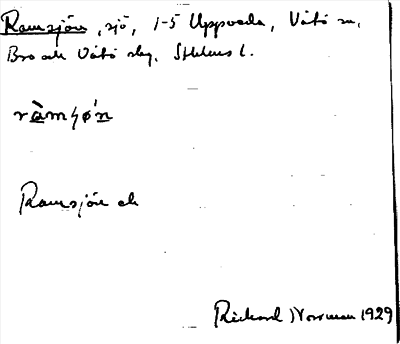 Ramsjön, sjö, 1-5 Uppsala, Vätö sn,
Bro och Vätö slg, Sthlms l.
ràmʂǿn
Ramsjön ek
Rickard Norrman 1929